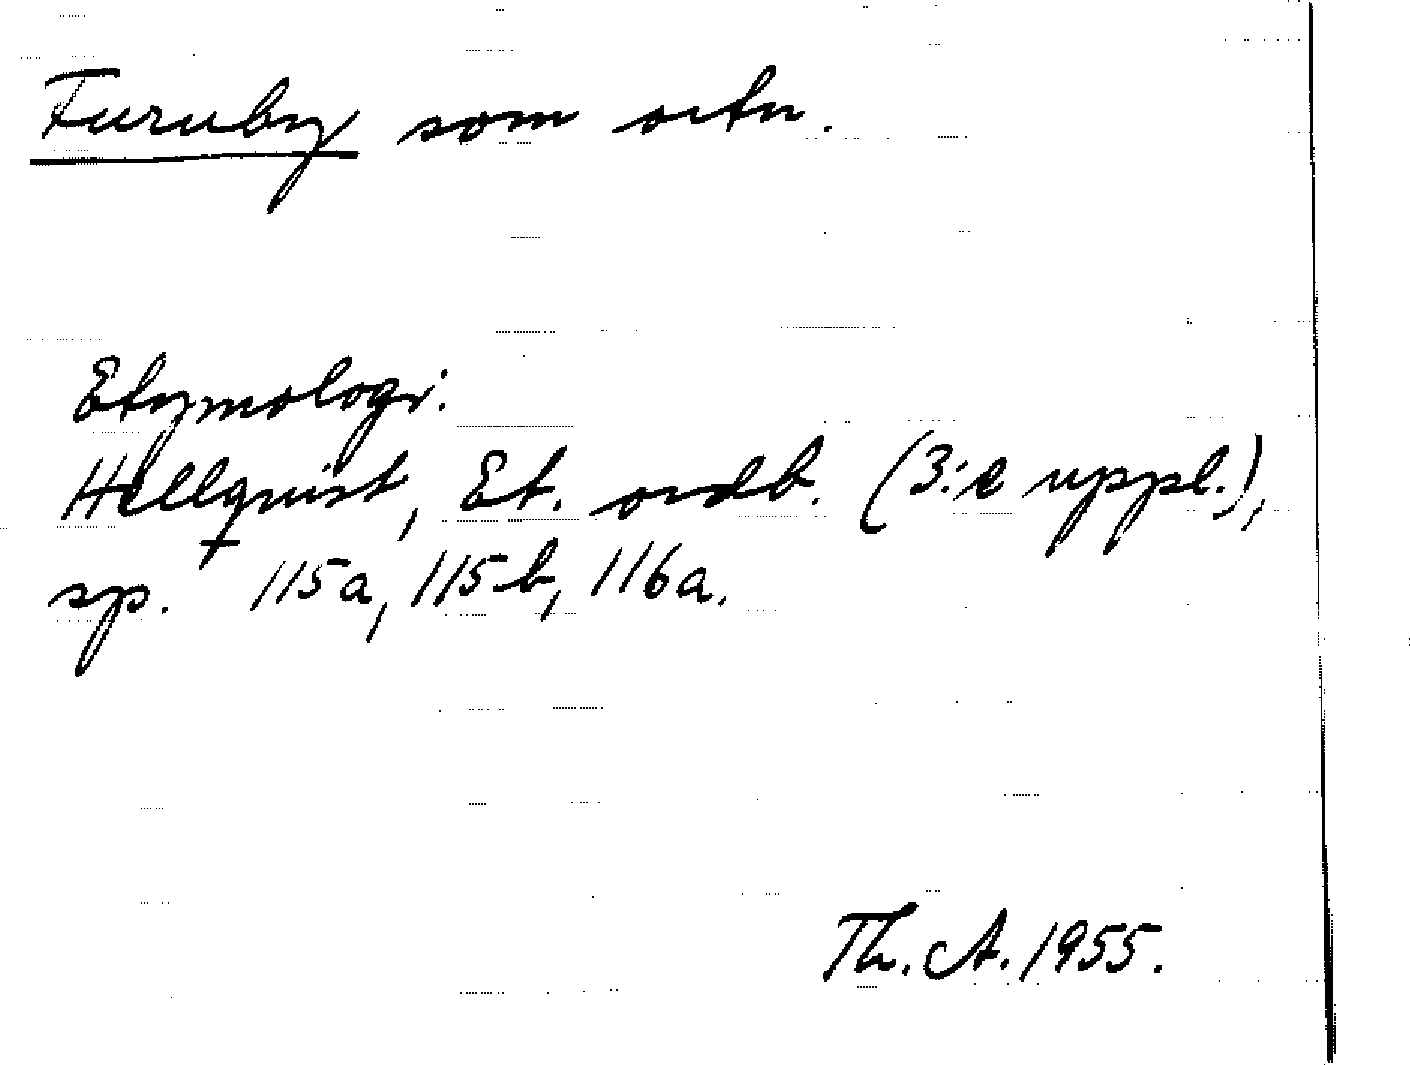 Furuby som ortn.
Etymologi.
Hellquist, Et. ordb. (3:e uppl.),
sp. 115a, 115b, 116a.
Th. A. 1955.